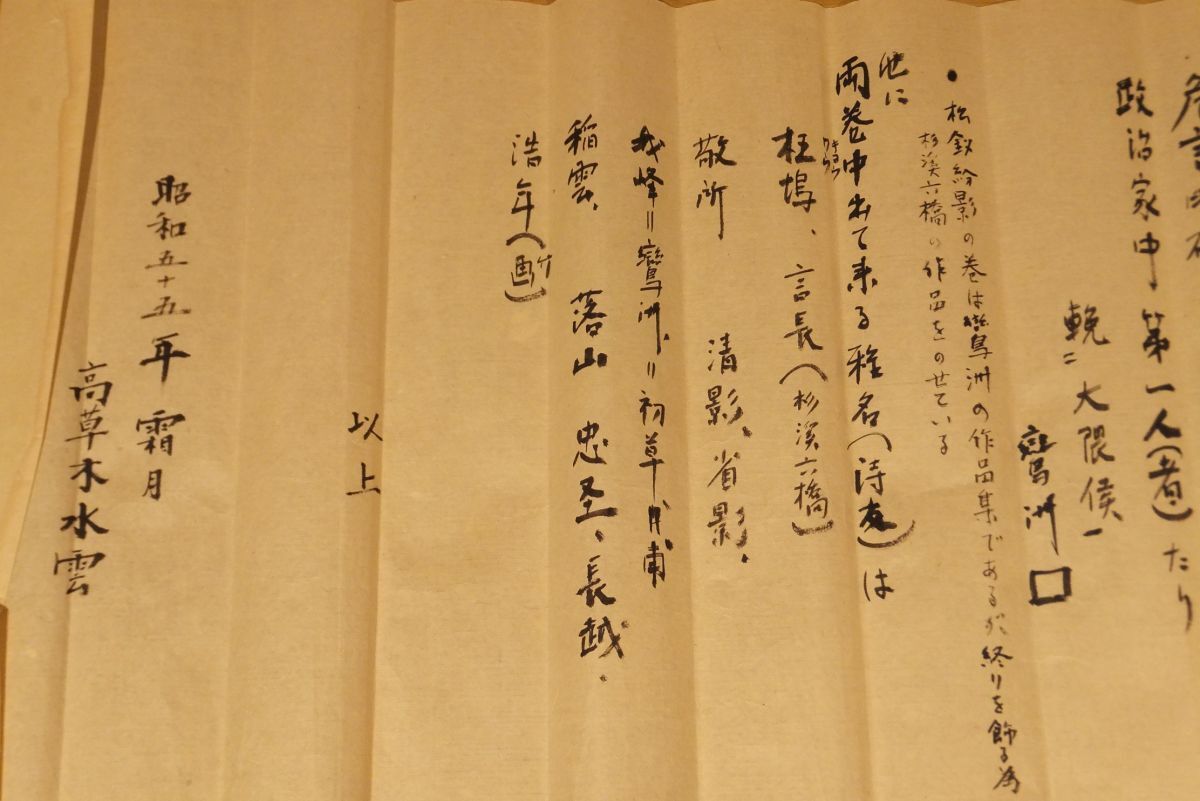 政治家中第一人(者)たり
輓ニ大隈侯一
鶯洲
・松釵紛影の巻は鶯洲の作品集であるが、終りを飾る為
杉渓六橋の作品をのせている
他に
両巻中出て来る雅名(詩友)は
枉塢、言長(杉渓六橋)
敬所 清影、省影、
峰=鶯洲、=初草 甫
稲雲、落山 忠圣、長越.
浩年()
以上
昭和五十五年 霜月
高草木水雲